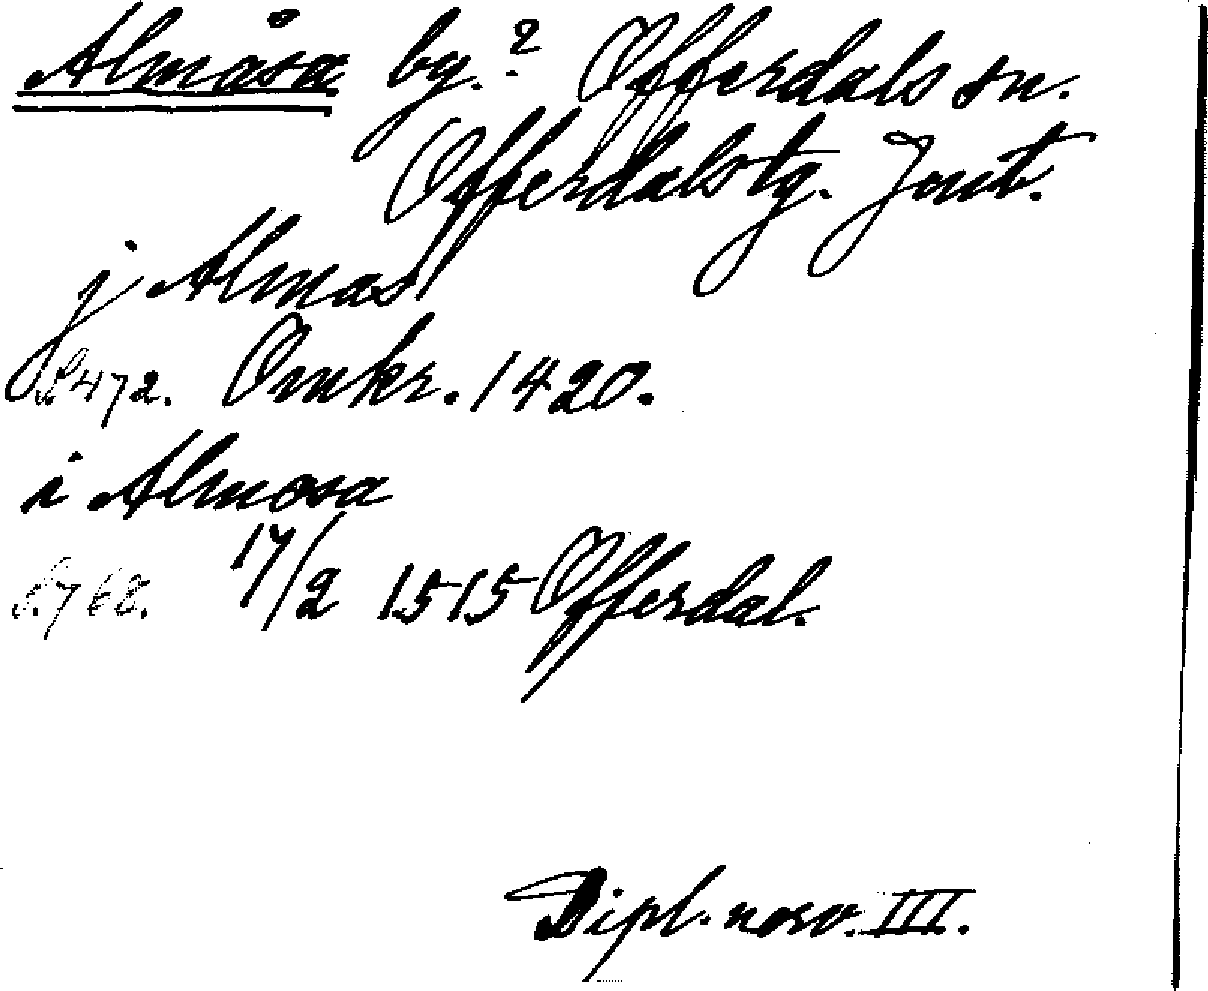 Almåsa by.? Offerdals sn.
Offerdals tg. Jmt.
j Almas
s. 472. Omkr. 1420.
i Almosa
s. 768. 17/2 1515 Offerdal.
Dipl. norv. III.